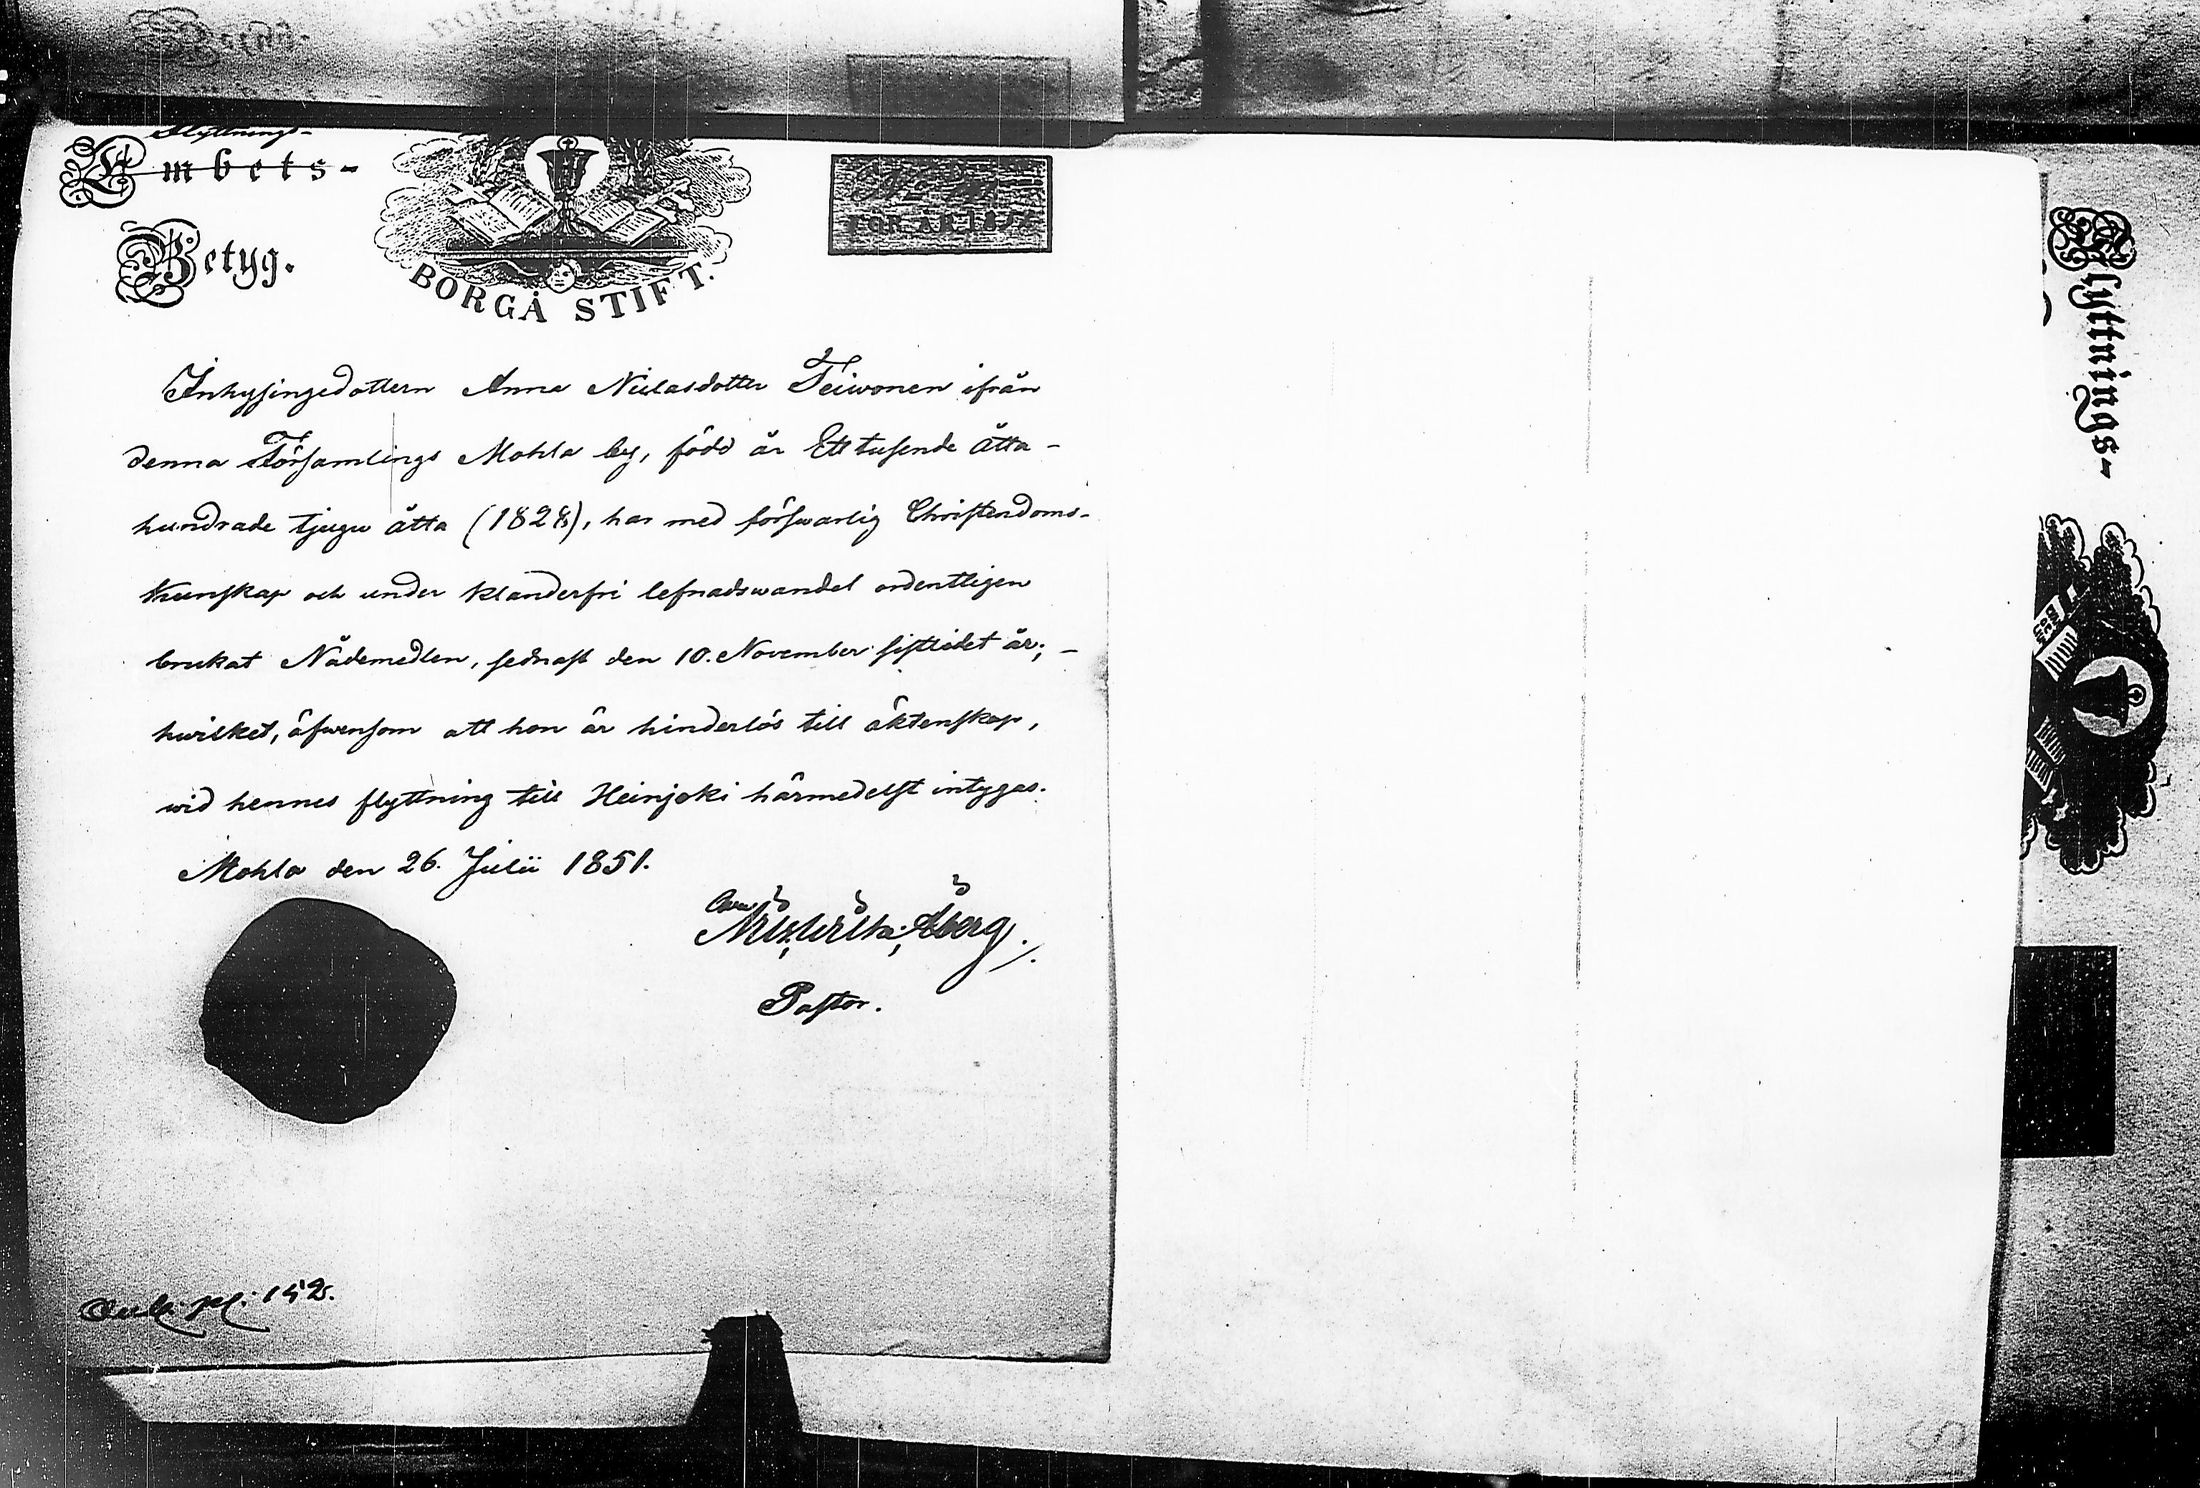 Flyttnings-
Embets-
Betyg.
BORGÅ STIFT.
FÖR ÅR 18
Inhysingedottern Anna Niclasdotter Teiwonen ifrån
denna Församlings Mohla by, född år Ett tusende åtta-
hundrade tjugu åtta (1828), har med förswarlig Christendoms-
kunskap och under klanderfri lefnadswandel ordentligen
brukat Nådemedlen, sednast den 10. November sistlidet år; -
hwilket, äfwensom att hon är hinderlös till äktenskap,
wid hennes flyttning till Heinjoki härmedelst intygas.
Mohla den 26. Julii 1851.
Åberg.
Pastor.
pg: 152.
Flyttnings-